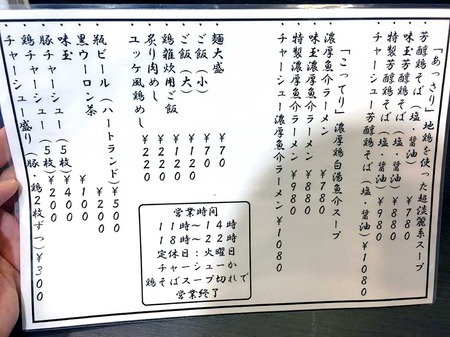 「あっさり」地鶏を使った超淡麗系スープ
・芳醇鶏そば（塩・醤油）￥780
・味玉芳醇鶏そば（塩・醤油）￥880
・特製芳醇鶏そば（塩・醤油）￥980
・チャーシュー芳醇鶏そば（塩・醤油）￥1080
「こってり」濃厚鶏白湯魚介スープ
・濃厚魚介ラーメン￥780
・味玉濃厚魚介ラーメン￥880
・特製濃厚魚介ラーメン￥980
・チャーシュー濃厚魚介ラーメン￥1080
・麺大盛￥70
・ご飯（小）￥70
・ご飯（大）￥120
・鶏雑炊用ご飯￥150
・炙り肉めし￥220
・ユッケ風鶏めし￥220
・瓶ビール（ハートランド）￥500
・黒ウーロン茶￥200
・味玉￥100
・豚チャーシュー（5枚）￥400
・鶏チャーシュー（5枚）￥200
・チャーシュー盛り（豚・鶏2枚ずつ）￥300
営業時間
11時～14時
18時～22時
定休日：火曜日
チャーシューか
鶏そばスープ切れで
営業終了